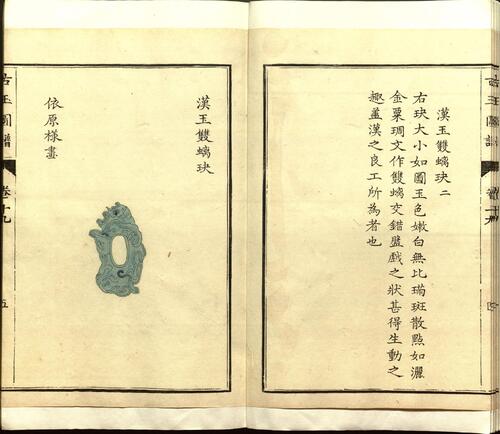 漢玉雙螭玦二
右玦大小如圖玉色嫩白無比瑞斑散點如灑
金粟琱文作雙螭交錯盤戲之狀甚得生動之
趣葢漢之良工所為者也
四
漢玉雙螭玦
依原樣畫
古玉圖譜
卷十九
五